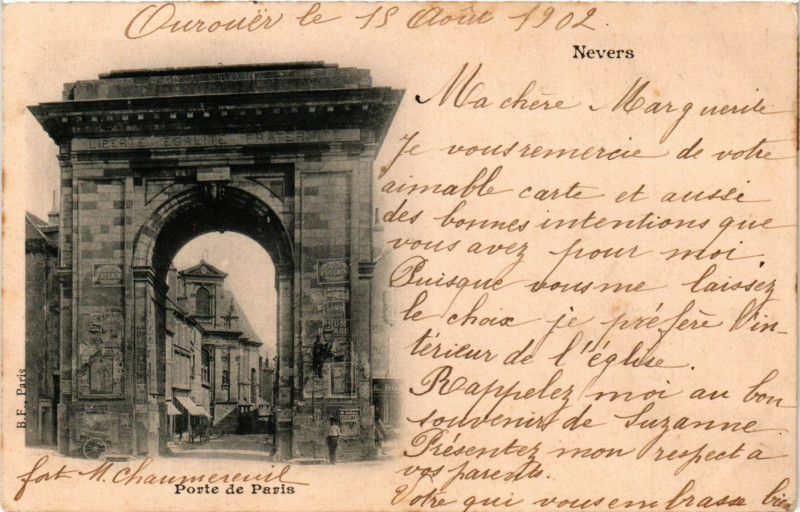 Ourouër le 15 Août 1902.
Nevers
LIBERTÉ EGALITÉ FRATERNITÉ
Ma chère Marguerite
Je vous remercie de votre
aimable carte et aussi
des bonnes intentions que
vous avez pour moi.
Puisque vous me laissez
le choix je préfère l'in-
térieur de l'église.
Rappelez moi au bon
souvenir de Suzanne
Présentez mon respect à
vos parents.
Votre qui vous embrasse bien
fort M. Chaumereuil
Porte de Paris
B.F. Paris